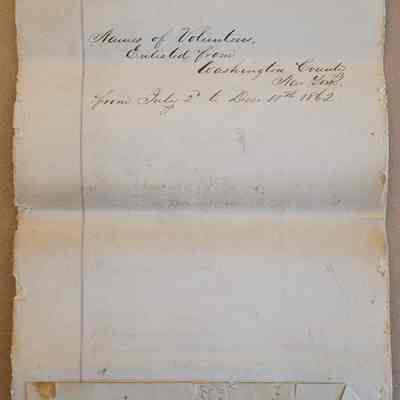 Names of Volunteers,
Enlisted from
Washington County
New York.
from July 2d to Dec 11th 1862